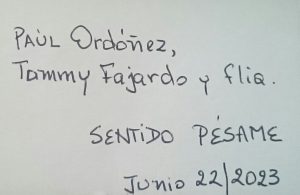 PAÚL Ordóñez,
Tammy Fajardo y flia.
SENTIDO PÉSAME
Junio 22/2023